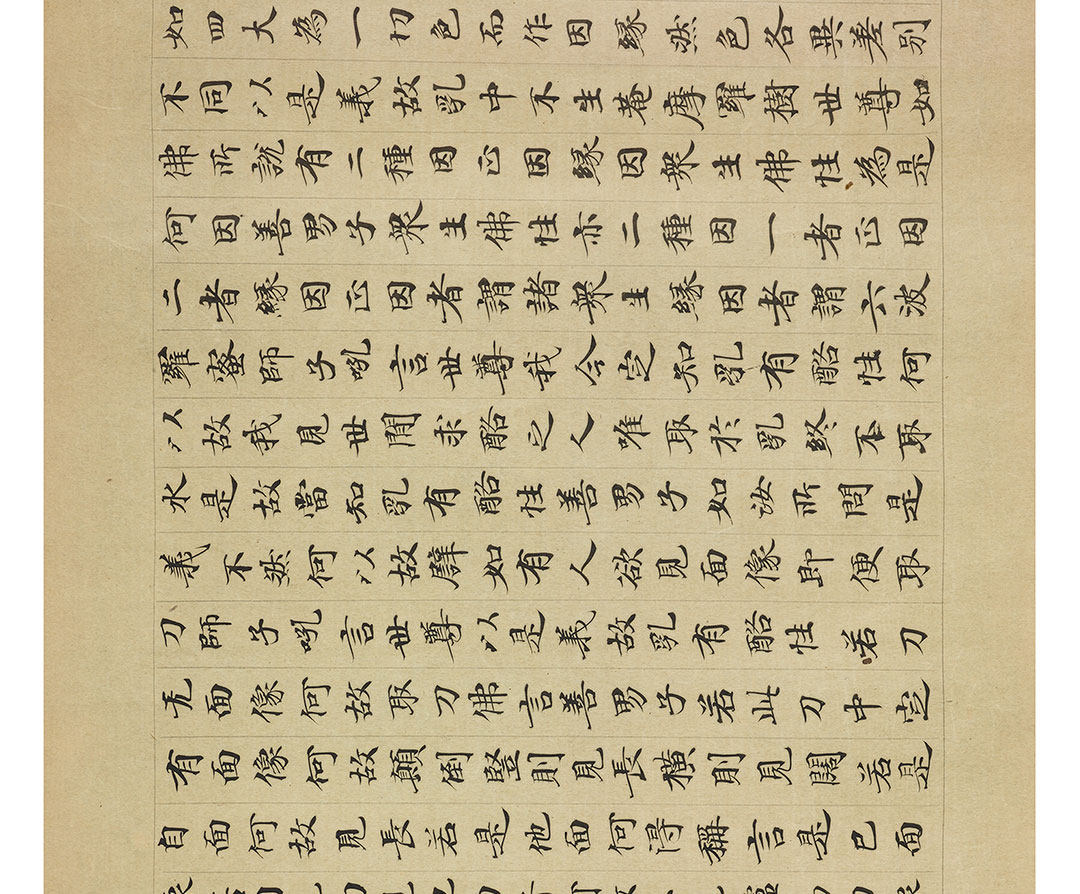 如四大為一切色而作因緣然色各異差別
不同以是義故乳中不生菴摩羅樹世尊如
佛所說有二種因正因緣因衆生佛性為是
何因善男子衆生佛性亦二種因一者正因
二者緣因正因者謂諸衆生緣因者謂六波
羅蜜師子吼言世尊我今定知乳有酪性何
以故我見世間求酪之人唯取於乳終不取
水是故當知乳有酪性善男子如汝所問是
義不然何以故譬如有人欲見面像即便取
刀師子吼言世尊以是義故乳有酪性若刀
无面像何故取刀佛言善男子若此刀中定
有面像何故顛倒竪則見長橫則見闊若是
自面何故見長若是他面何得稱言是己面